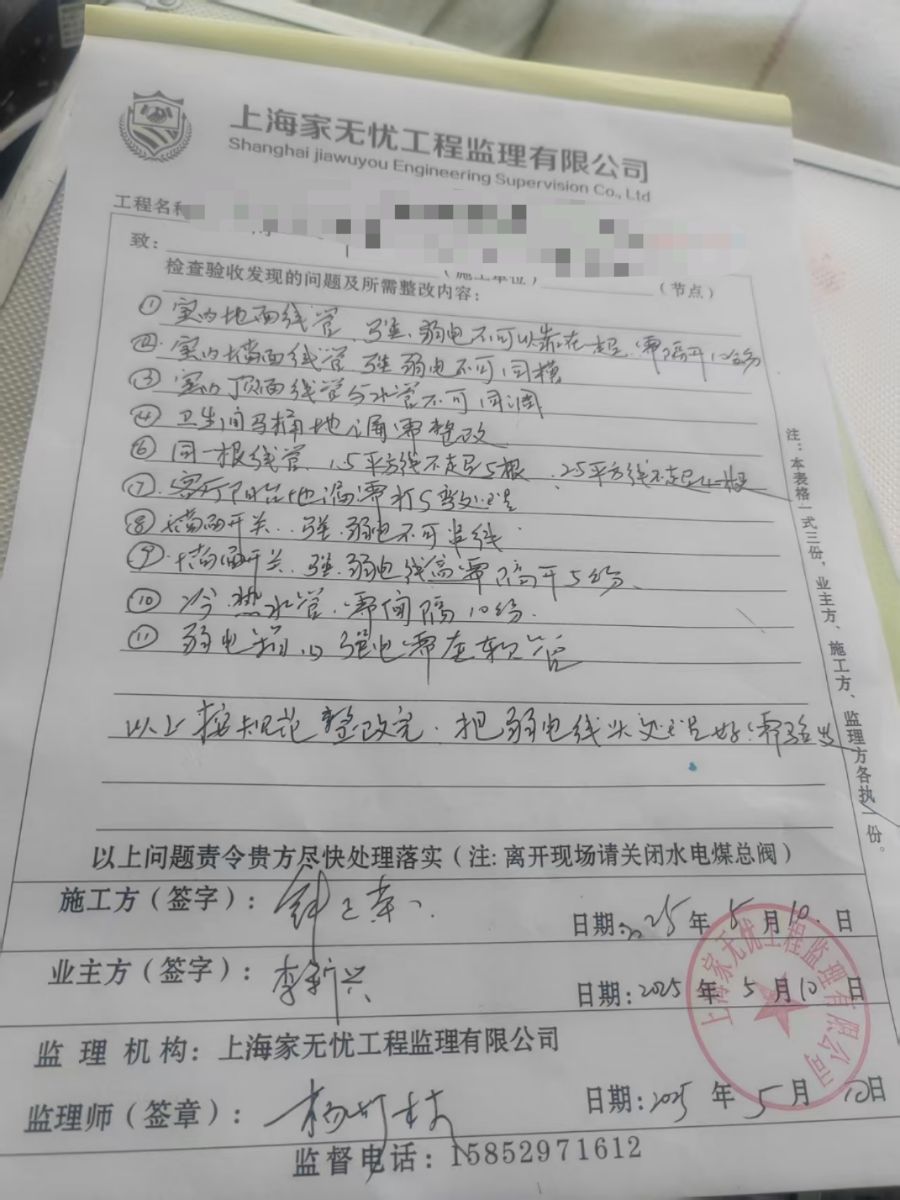 上海家无忧工程监理有限公司
Shanghai jiawuyou Engineering Supervision Co., Ltd
工程名称
致：（施工单位）（节点）
检查验收发现的问题及所需整改内容：
① 室内地面线管、强、弱电不可以靠在一起，需隔开10公分
② 室内墙面线管 强 弱电不可同槽
③ 室内顶面线管与水管不可同
④ 卫生间马桶地漏需整改
⑥ 同一根线管、1.5平方线不走足5根、2.5平方线不走足4根
⑦ 客厅阳台地漏需打S弯处理
⑧ 墙面开关、强、弱电不可串线
⑨ 墙面开关、强、弱电线高需隔开5公分、
⑩ 冷 热水管、需间隔10公分.
⑪ 弱电箱内 强电需套软管
以上按规范整改完、把弱电线头处理好、需验
以上问题责令贵方尽快处理落实（注：离开现场请关闭水电煤总阀）
施工方（签字）： 日期：2025年5月10日
业主方（签字）：李新兴 日期：2025年5月10日
监理机构：上海家无忧工程监理有限公司
监理师（签章）： 日期：2025年5月10日
监督电话：15852971612
注：本表格一式三份，业主方、施工方、监理方各执一份。
上海家无忧工程监理有限公司